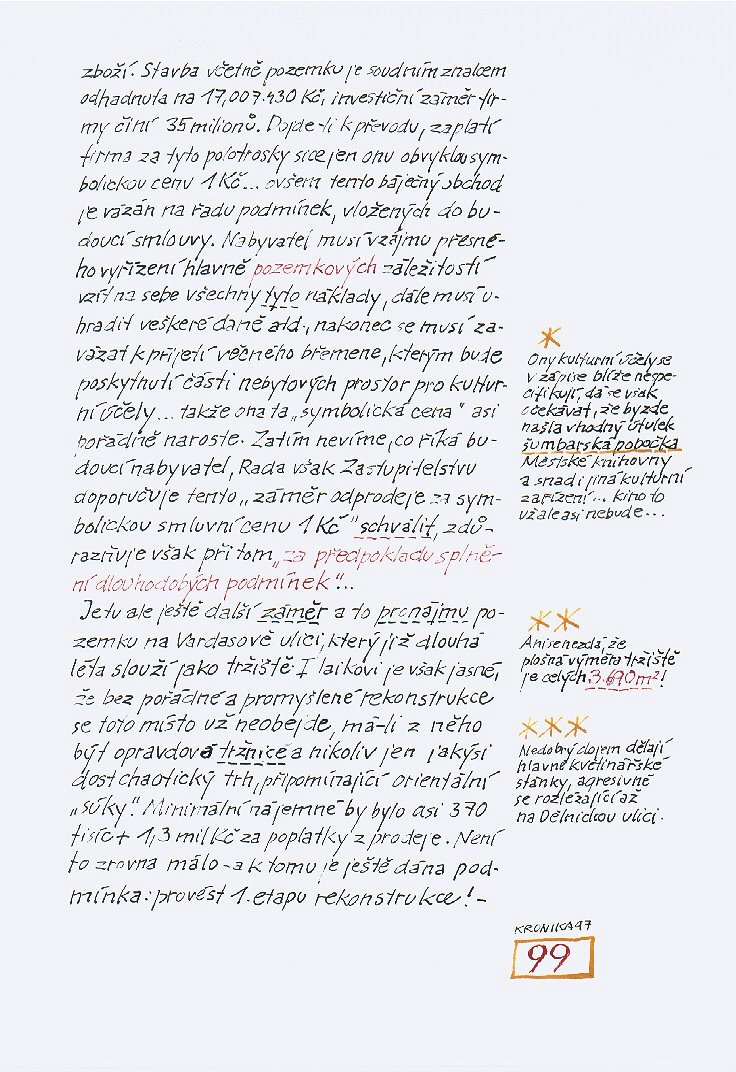 zboží. Stavba včetně pozemku je soudním znalcem
odhadnuta na 17,007.430 Kč, investiční záměr fir-
my činí 35 milionů. Dojde-li k převodu, zaplatí
firma za tyto polotrosky sice jen onu obvyklou sym-
bolickou cenu 1 Kč... ovšem tento báječný obchod
je vázán na řadu podmínek, vložených do bu-
doucí smlouvy. Nabyvatel musí v zájmu přesné-
ho vyřízení hlavně pozemkových záležitostí
vzít na sebe všechny tyto náklady, dále musí u-
hradit veškeré daně atd., nakonec se musí za-
vázat k přijetí věcného břemene, kterým bude
poskytnutí části nebytových prostor pro kultur-
ní účely... takže ona ta „symbolická cena" asi
pořádně naroste. Zatím nevíme, co říká bu-
doucí nabyvatel, Rada však Zastupitelstvu
doporučuje tento „záměr odprodeje za sym-
bolickou smluvní cenu 1 Kč" schválit, zdů-
razňuje však při tom „za předpokladu splně-
ní dlouhodobých podmínek"...
Je tu ale ještě další záměr a to pronájmu po-
zemku na Vardasově ulici, který již dlouhá
léta slouží jako tržiště. I laikovi je však jasné,
že bez pořádné a promyšlené rekonstrukce
se toto místo už neobejde, má-li z něho
být opravdová tržnice a nikoliv jen jakýsi
dost chaotický trh, připomínající orientální
„súky". Minimální nájemné by bylo asi 370
tisíc + 1,3 mil Kč za poplatky z prodeje. Není
to zrovna málo - a k tomu je ještě dána pod-
mínka: provést 1. etapu rekonstrukce! -
*
Ony kulturní účely se
v zápise blíže nespe-
cifikují, dá se však
očekávat, že by zde
našla vhodný útulek
šumbarská pobočka
Městské knihovny
a snad i jiná kulturní
zařízení... kino to
už ale asi nebude...
**
Ani se nezdá, že
plošná výměra tržiště
je celých 3.690 m²!
***
Nedobrý dojem dělají
hlavně květinářské
stánky, agresivně
se rozležající až
na Dělnickou ulici.
KRONIKA 97
99